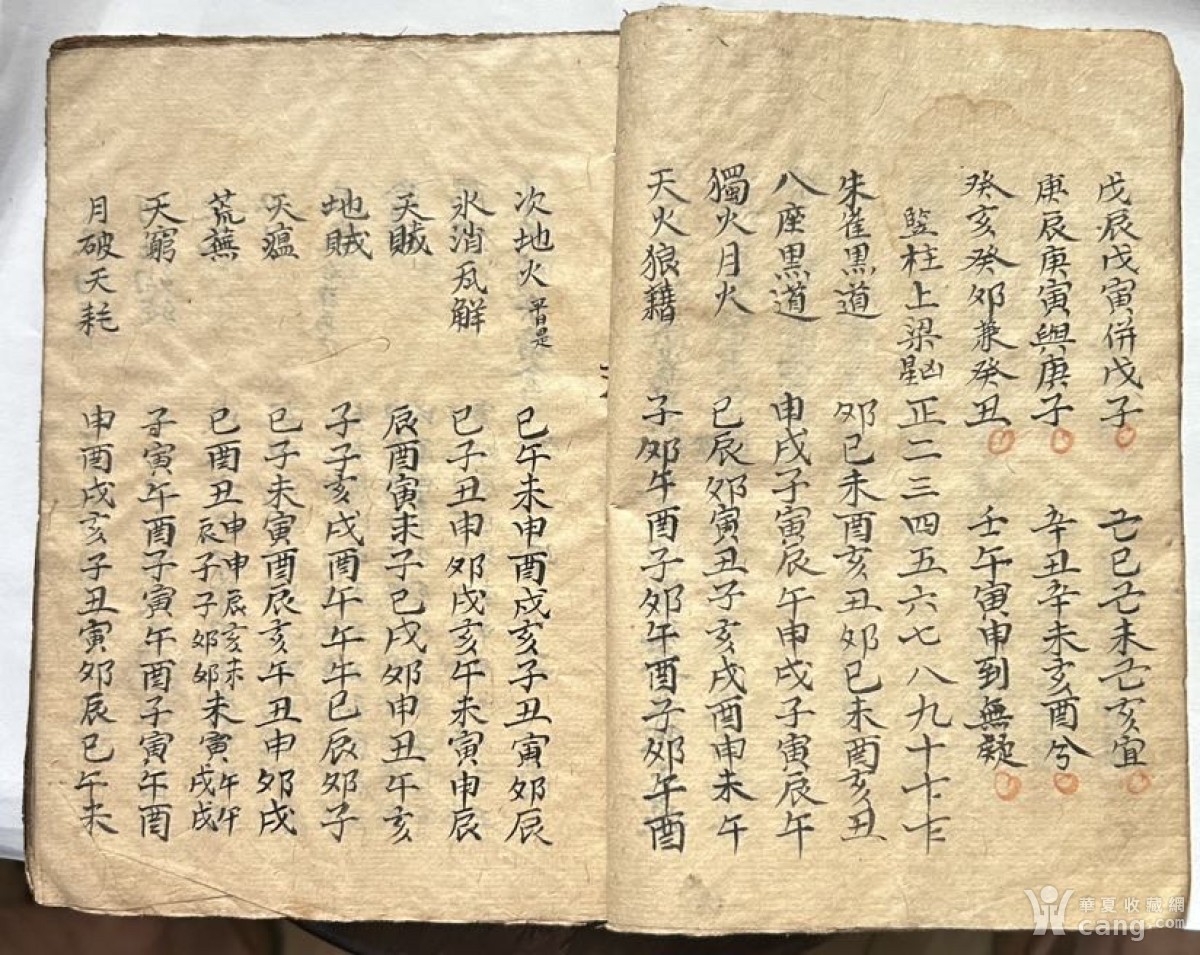 戊辰戊寅併戊子 㠯巳㠯未㠯亥宜
庚辰庚寅與庚子 辛丑辛未亥酉兮
癸亥癸夘兼癸丑 壬午寅申到無疑
竪柱上梁凶星 正二三四五六七八九十
朱雀黒道 夘巳未酉亥丑夘巳未酉亥丑
八座黒道 申戌子寅辰午申戌子寅辰午
獨火月火 巳辰夘寅丑子亥戌酉申未午
天火狼藉 子夘午酉子夘午酉子夘午酉
次地火 巳午未申酉戌亥子丑寅夘辰
氷消瓦解 巳子丑申夘戌亥午未寅申辰
天賊 辰酉寅未子巳戌夘申丑午亥
地賊 子子亥戌酉午午午巳辰夘子
天瘟 巳子未寅酉辰亥午丑申夘戌
荒蕪 巳酉丑申申辰亥未辰子子夘夘未寅午午戌戌
天窮 子寅午酉子寅午酉子寅午酉
月破天耗 申酉戌亥子丑寅夘辰巳午未
華夏收藏網
cang.com